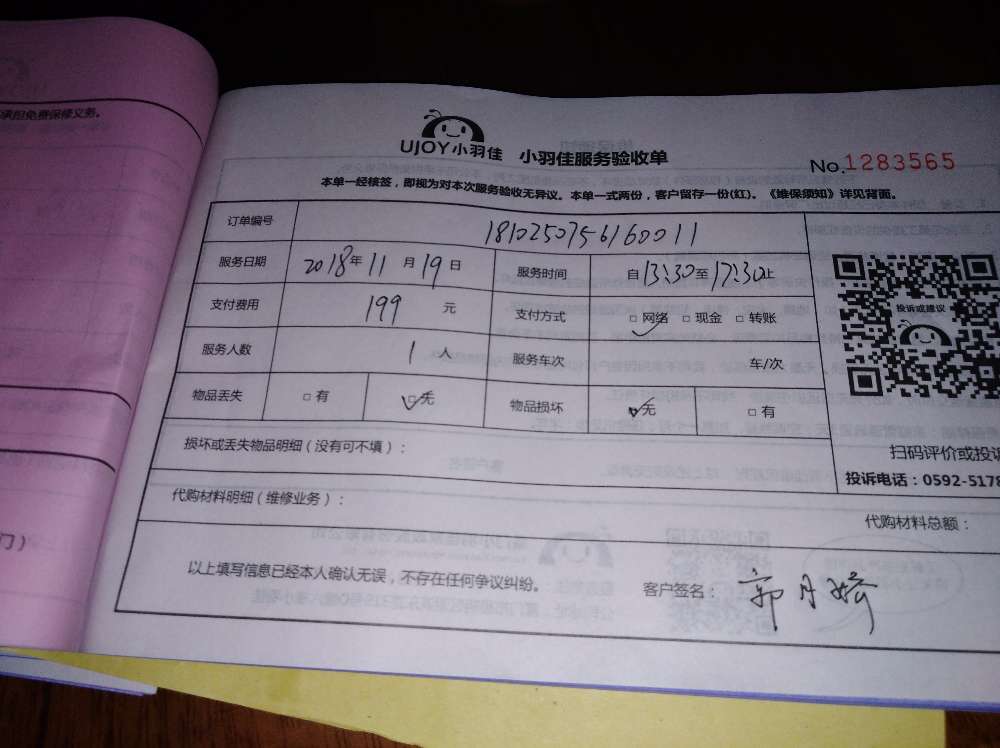 承担免费保修义务。
UJOY小羽佳 小羽佳服务验收单
No.1283565
本单一经核签，即视为对本次服务验收无异议。本单一式两份，客户留存一份(红)。《维保须知》详见背面。
订单编号 1810250756160011
服务日期 2018年11月19日 服务时间 自13:30至17:30止
支付费用 199 元 支付方式 □网络 □现金 □转账
投诉或建议
服务人数 1 人 服务车次 车/次
物品丢失 □有 □无 物品损坏 □无 □有
损坏或丢失物品明细（没有可不填）：
扫码评价或投诉
投诉电话：0592-5178
代购材料明细（维修业务）：
代购材料总额：
门）
以上填写信息已经本人确认无误，不存在任何争议纠纷。 客户签名：郭月娇